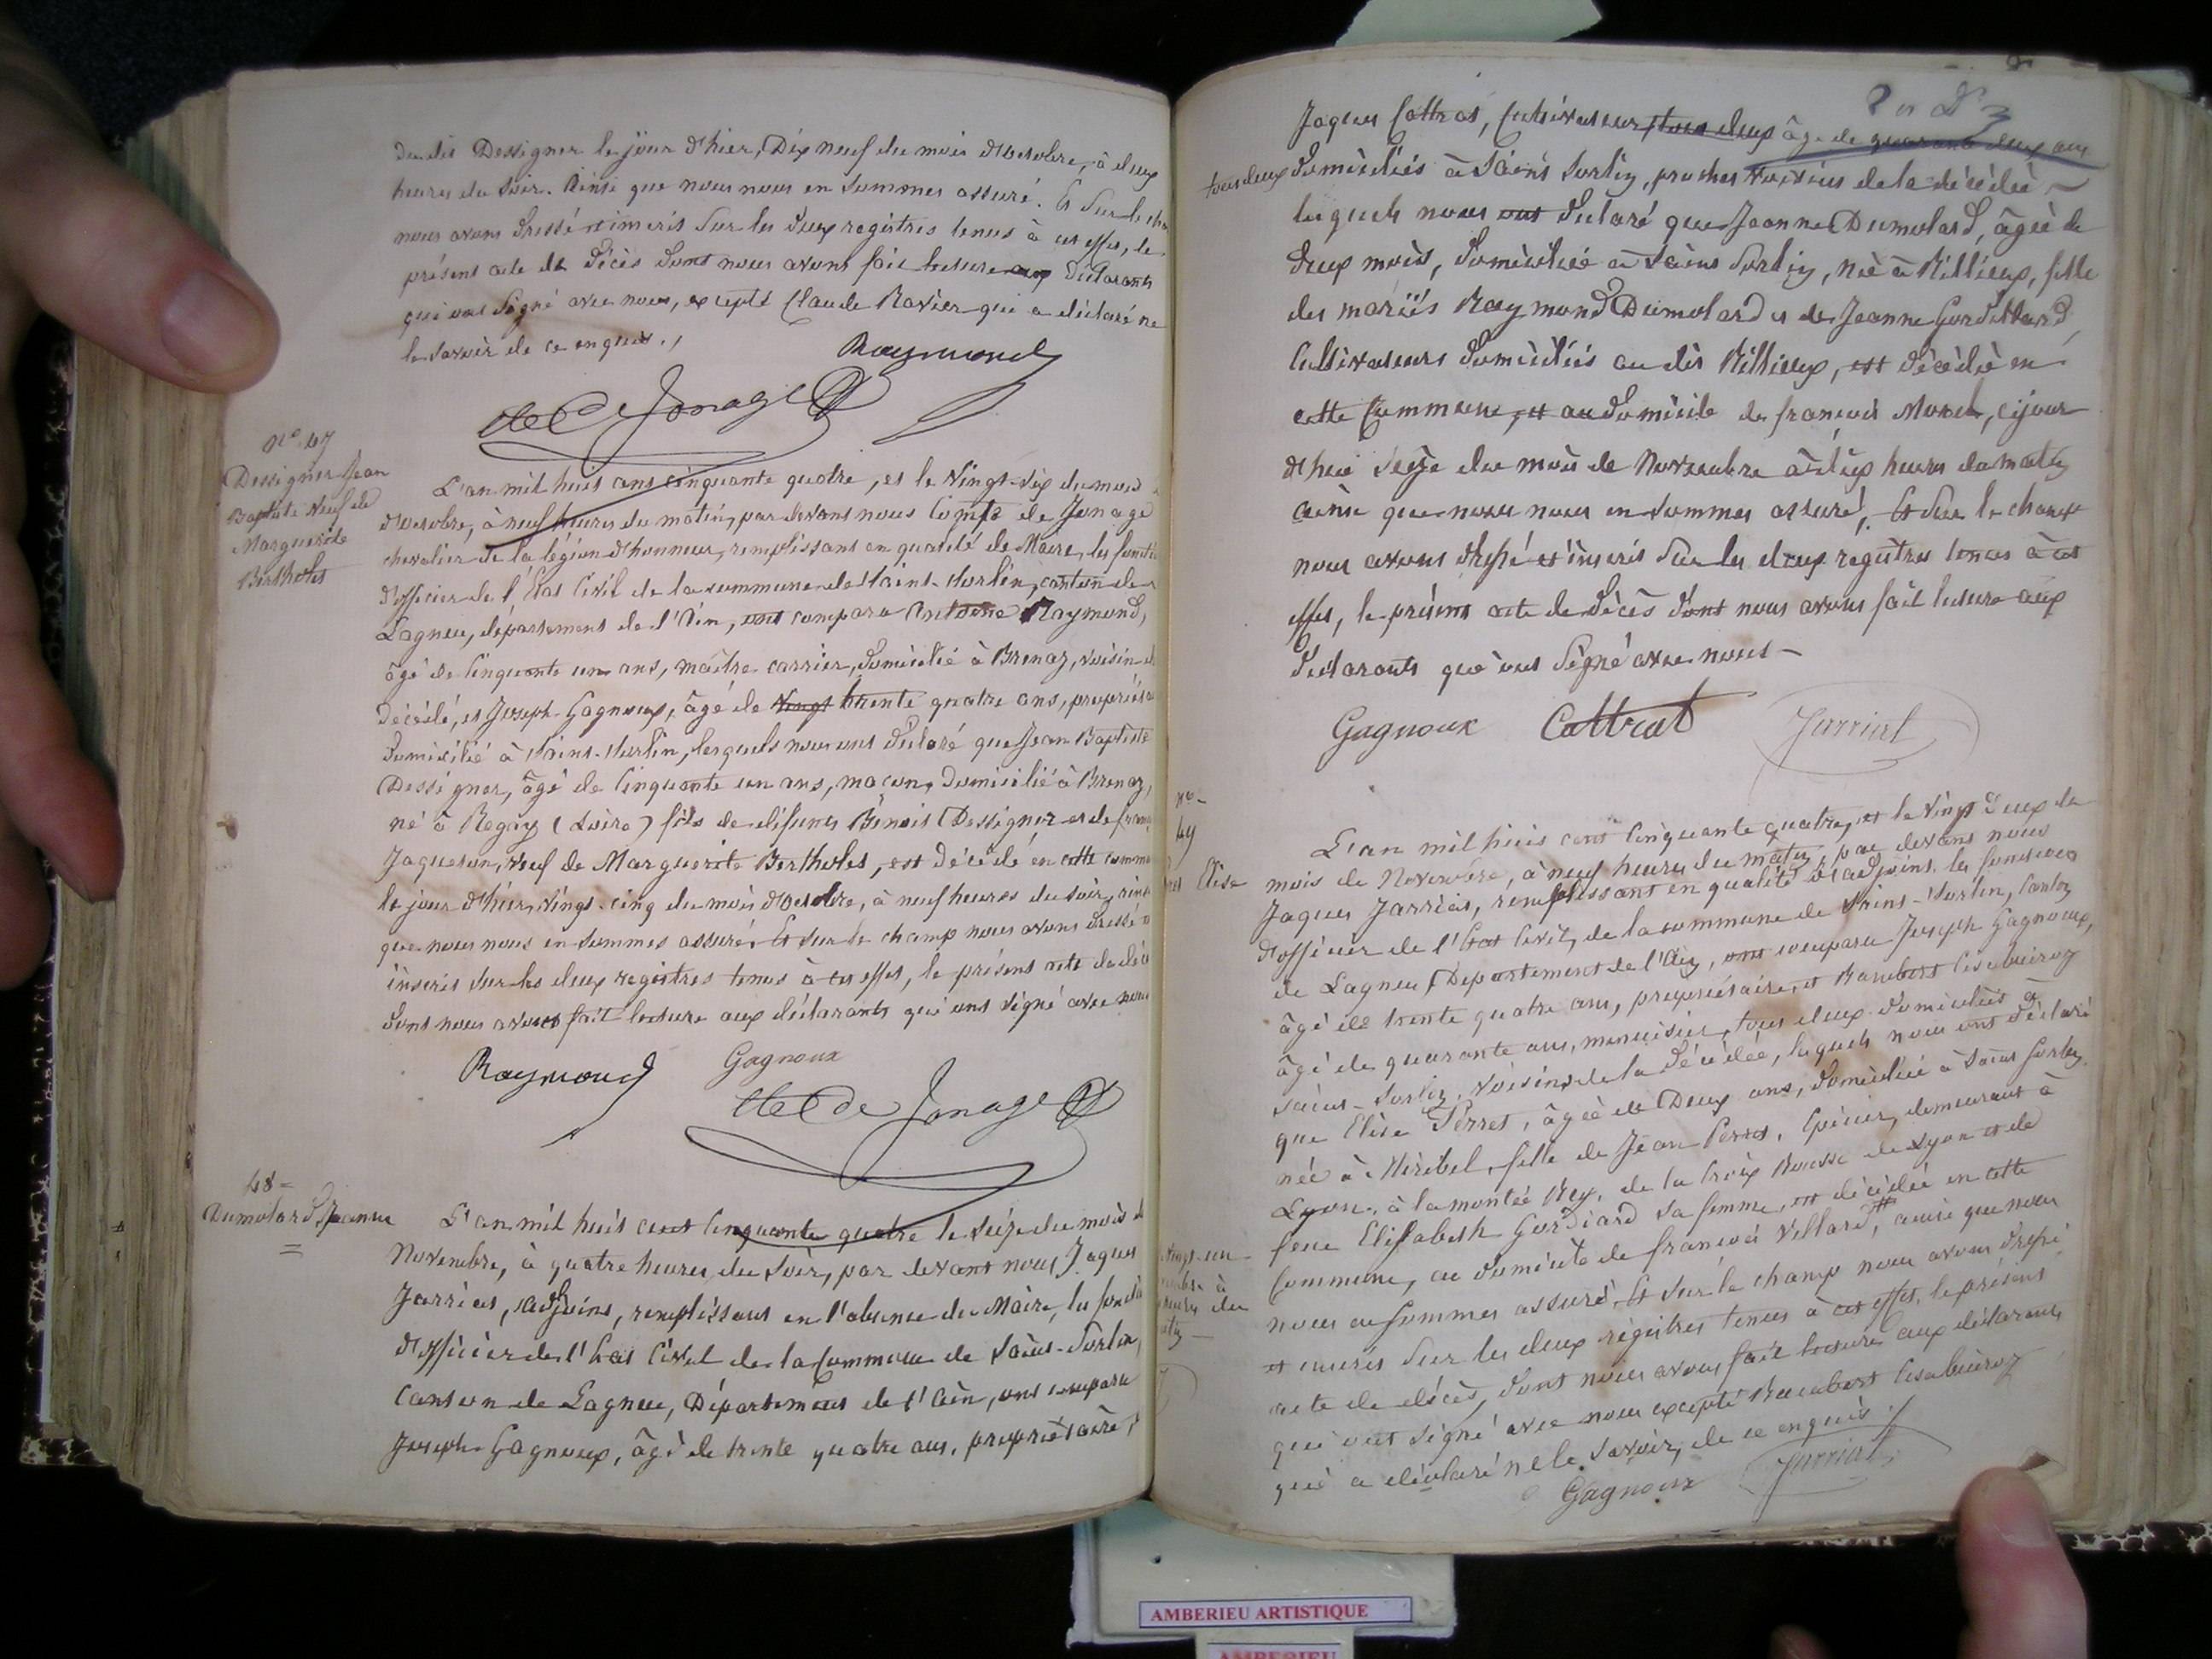 dudit Dessigner le jour d'hier, Dix neuf du mois d'Octobre, à deux
heures du soir. Ainsi que nous nous en sommes assuré. Et sur le cham
nous avons dressé et inscrit sur les deux registres tenus à cet effet, le
présent acte de décès dont nous avons fait lecture aux déclarants
qui ont signé avec nous, excepté Claude Ravier qui a déclaré ne
le savoir de ce enquis./
Raymond
de Jonage
N° 47
Dessigner Jean
Baptiste veuf de
Marguerite
Berthelet
L'an mil huit cent cinquante quatre, et le vingt-six du mois
d'octobre, à neuf heures du matin, par devant nous Comte de Jonage
chevalier de la légion d'honneur, remplissant en qualité de Maire, les foncti
d'officier de l'État Civil de la commune de Saint-Sorlin, canton de
Lagneu, département de l'Ain, ont comparu Antoine Raymond,
âgé de cinquante un ans, maître carrier, domicilié à Brenaz, voisin d
décédé, et Joseph Gagnoux, âgé de vingt trente quatre ans, propriéta
domicilié à Saint-Sorlin, lesquels nous ont déclaré que Jean Baptiste
Dessigner, âgé de cinquante un ans, maçon, domicilié à Brenaz,
né à Regny (Loire) fils de défunts Benoit Dessigner et de fran
Jaqueson, veuf de Marguerite Berthelet, est décédé en cette comm
le jour d'hier, vingt-cinq du mois d'octobre, à neuf heures du soir, ainsi
que nous nous en sommes assuré. Et sur le champ nous avons dressé
inscrit sur les deux registres tenus à cet effet, le présent acte de décè
dont nous avons fait lecture aux déclarants qui ont signé avec nous
Raymond Gagnoux
de Jonage
48=
Dumolard Jeanne
=
L'an mil huit cent cinquante quatre le seize du mois d
Novembre, à quatre heures du soir, par devant nous Jaques
Jarriat, adjoint, remplissant en l'absence du Maire, les foncti
d'officier de l'État Civil de la Commune de Saint-Sorlin,
canton de Lagneu, Département de l'Ain, ont comparu
Joseph Gagnoux, âgé de trente quatre ans, propriétaire,
Jaques Cattrat, Cultivateur, tous deux âgé de quarante deux ans
tous deux domiciliés à Saint Sorlin, proches voisins de la décédée
lesquels nous ont déclaré que Jeanne Dumolard, âgée de
deux mois, domiciliée à Saint Sorlin, née à Rillieux, fille
des mariés Raymond Dumolard et de Jeanne
Cultivateurs domiciliés au dit Rillieux, est décédée en
cette Commune, et au domicile de françois Morel, cejour
d'hui seize du mois de Novembre à dix heures du matin
ainsi que nous nous en sommes assuré. Et sur le champ
nous avons dressé et inscrit sur les deux registres tenus à cet
effet, le présent acte de décès dont nous avons fait lecture aux
déclarants qui ont signé avec nous
Gagnoux Cattrat Jarriat
N°
49
Elise
L'an mil huit cent cinquante quatre, et le vingt deux du
mois de Novembre, à neuf heures du matin, par devant nous
Jaques Jarriat, remplissant en qualité d'adjoint les fonctions
d'officier de l'État Civil, de la commune de Saint-Sorlin, Canton
de Lagneu, Département de l'Ain, ont comparu Joseph Gagnoux,
âgé de trente quatre ans, propriétaire, et Rambert
âgé de quarante ans, menuisier, tous deux domiciliés à
Saint-Sorlin, voisins de la décédée, lesquels nous ont déclaré
que Elise Perret, âgée de Deux ans, domiciliée à Saint Sorlin
née à Miribel, fille de Jean Perret, Epicier, demeurant à
Lyon, à la montée Rey, de la Croix Rousse de Lyon et de
feue Elisabeth Gordiard sa femme, est décédée en cette
Commune, au domicile de françois Vellard, ainsi que nous
vingt-un
à
du
nous en sommes assuré. Et sur le champ nous avons dressé
et inscrit sur les deux registres tenus à cet effet, le présent
acte de décès, dont nous avons fait lecture aux déclarants
qui ont signé avec nous excepté Rambert
qui a déclaré ne le savoir, de ce enquis./
Gagnoux Jarriat
AMBERIEU ARTISTIQUE
AMBERIEU